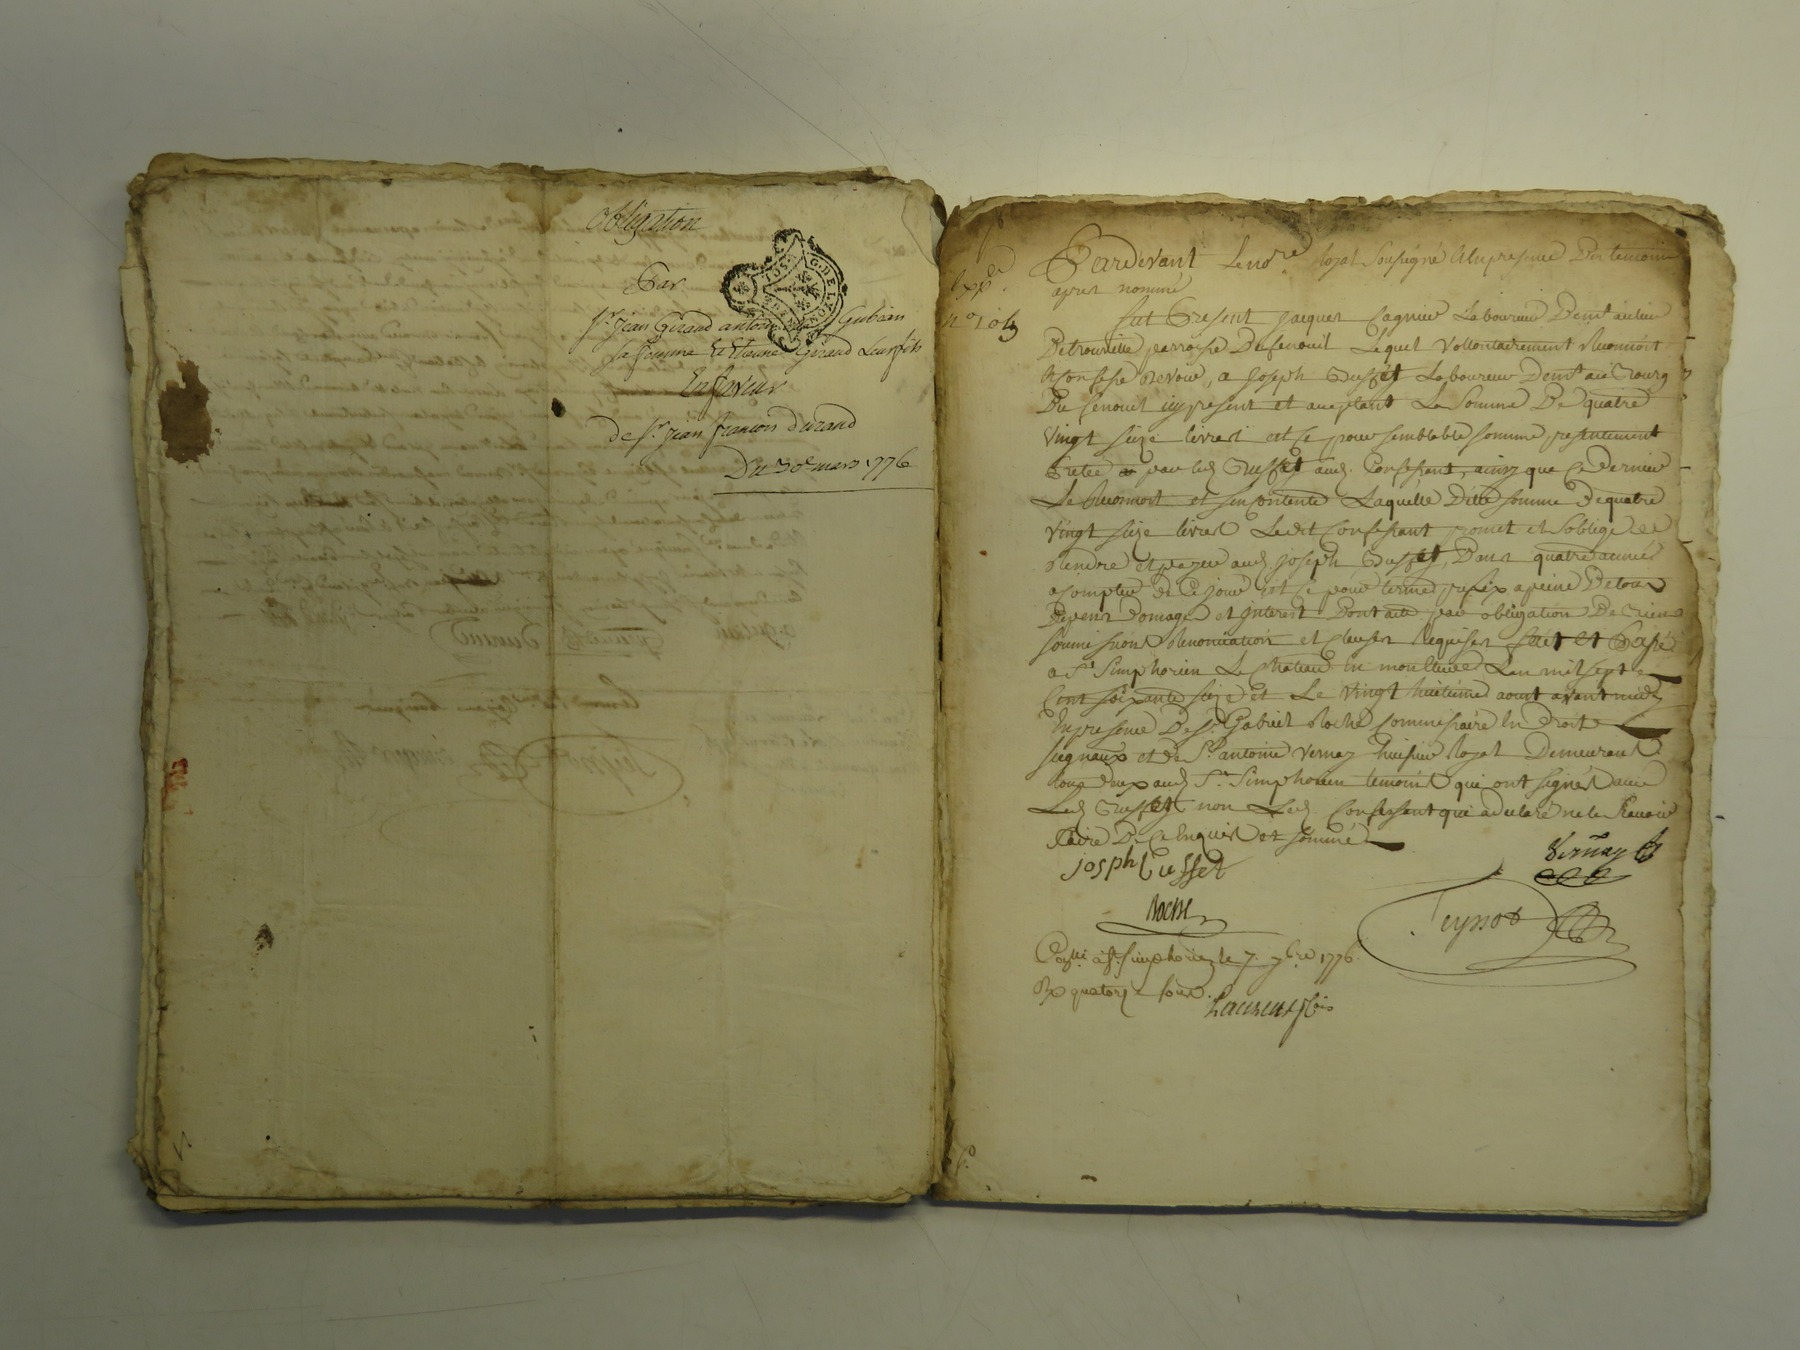 Obligation
Par
Sr. jean Giraud antoinette Gubian
sa femme Et Etienne Giraud Leur fils
En faveur
de Sr. jean françois durand
Du 30e mars 1776
G. DE LYON
Expd.
n° 104
Pardevant Le nore royal Soussigné & En presence Des temoins
apres nommé
fut Present jacques Laboureur Demt au lieu
De parroisse De fenouil Lequel Vollontairement Reconnoit
& Confesse Devoir, a Joseph Dusset Laboureur Demt au Bourg
Du fenouil icy present et acceptant La Somme De quatre
Vingt seize livres et ce pour semblable somme presentement
Pretée par led. aud. Confessant, ainsy que Ce Dernier
Le Reconnoit et s'en Contente Laquelle Ditte somme De quatre
Vingt seize livres Ledit Confessant promet et s'oblige de
Rendre et payer aud. Joseph Dans quatre années
a Compter de Ce jour et ce pour terme prefix a peine De tous
Depens Domages et Interest Dont acte par obligation De Biens
soumissions Renonciation et Clauses requises fait et Passé
a St. Simphorien Le Chateau En mon Etude L'an mil sept
Cent soixante seize et Le Vingt huitieme aout avant midy
En presence De Sr. Gabriel Roche Commissaire En Droits
seignaux et de Sr. antoine Vernay huissier royal Demeurant
tous deux aud. St. Simphorien temoins qui ont signés avec
Led. non Led. Confessant qui a declaré ne le Scavoir
faire De Ce Enquis et sommé
Joseph
Vernay
Roche
Teyssot
Conllé à St. Simphorien le 7. 7bre 1776.
Rx quatorze sous.